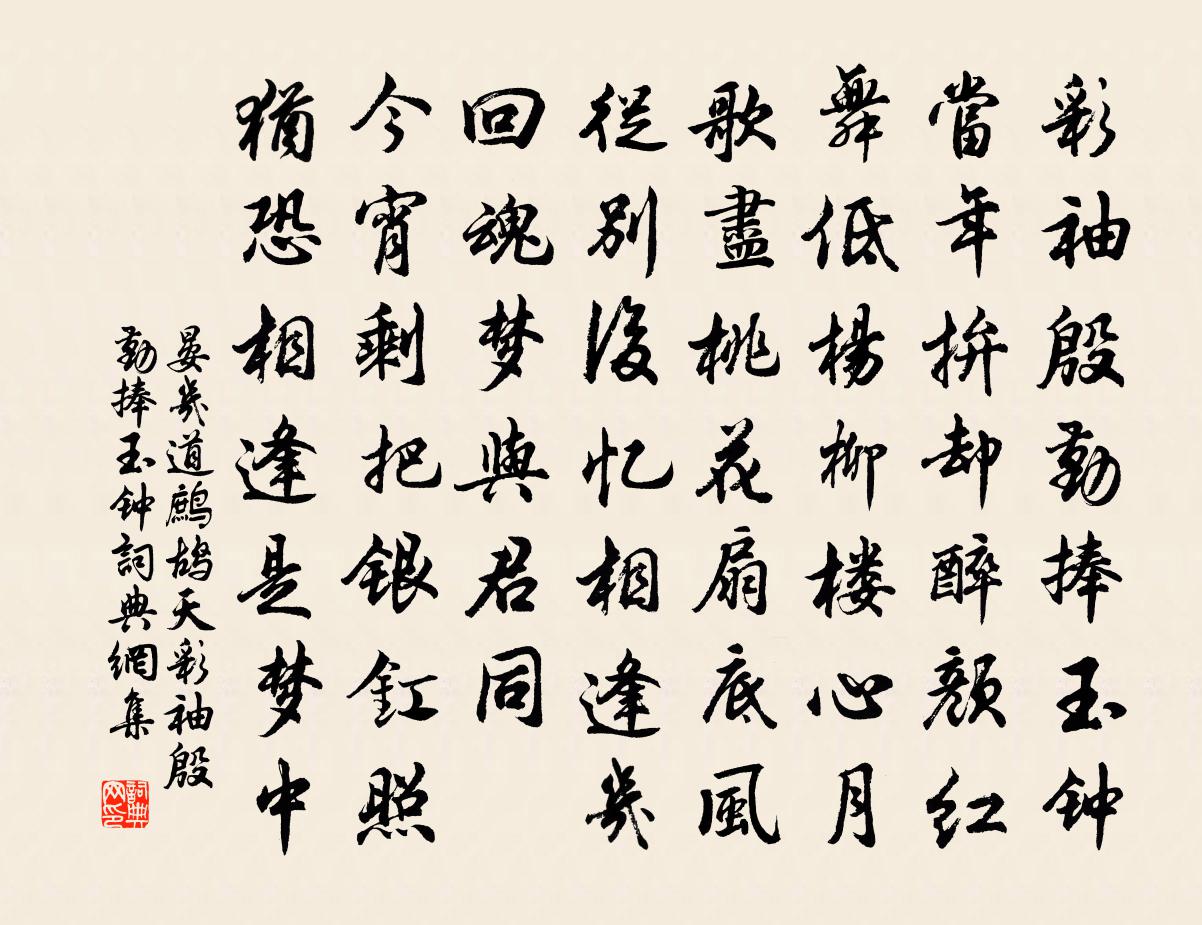 彩袖殷勤捧玉钟
當年拚却醉顔红
舞低楊柳楼心月
歌盡桃花扇底風
從别後忆相逢幾
回魂梦與君同
今宵剩把银釭照
猶恐相逢是梦中
晏幾道鷓鸪天彩袖殷
勤捧玉钟詞典網集
詞典
网印